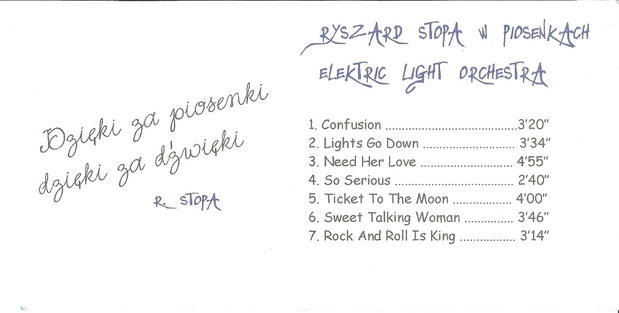 Dzięki za piosenki
dzięki za dźwięki
R. STOPA
RYSZARD STOPA W PIOSENKACH
ELEKTRIC LIGHT ORCHESTRA
1. Confusion ......................................3'20"
2. Lights Go Down ........................... 3'34"
3. Need Her Love ........................... 4'55"
4. So Serious ................................... 2'40"
5. Ticket To The Moon ................... 4'00"
6. Sweet Talking Woman ............... 3'46"
7. Rock And Roll Is King ................ 3'14"